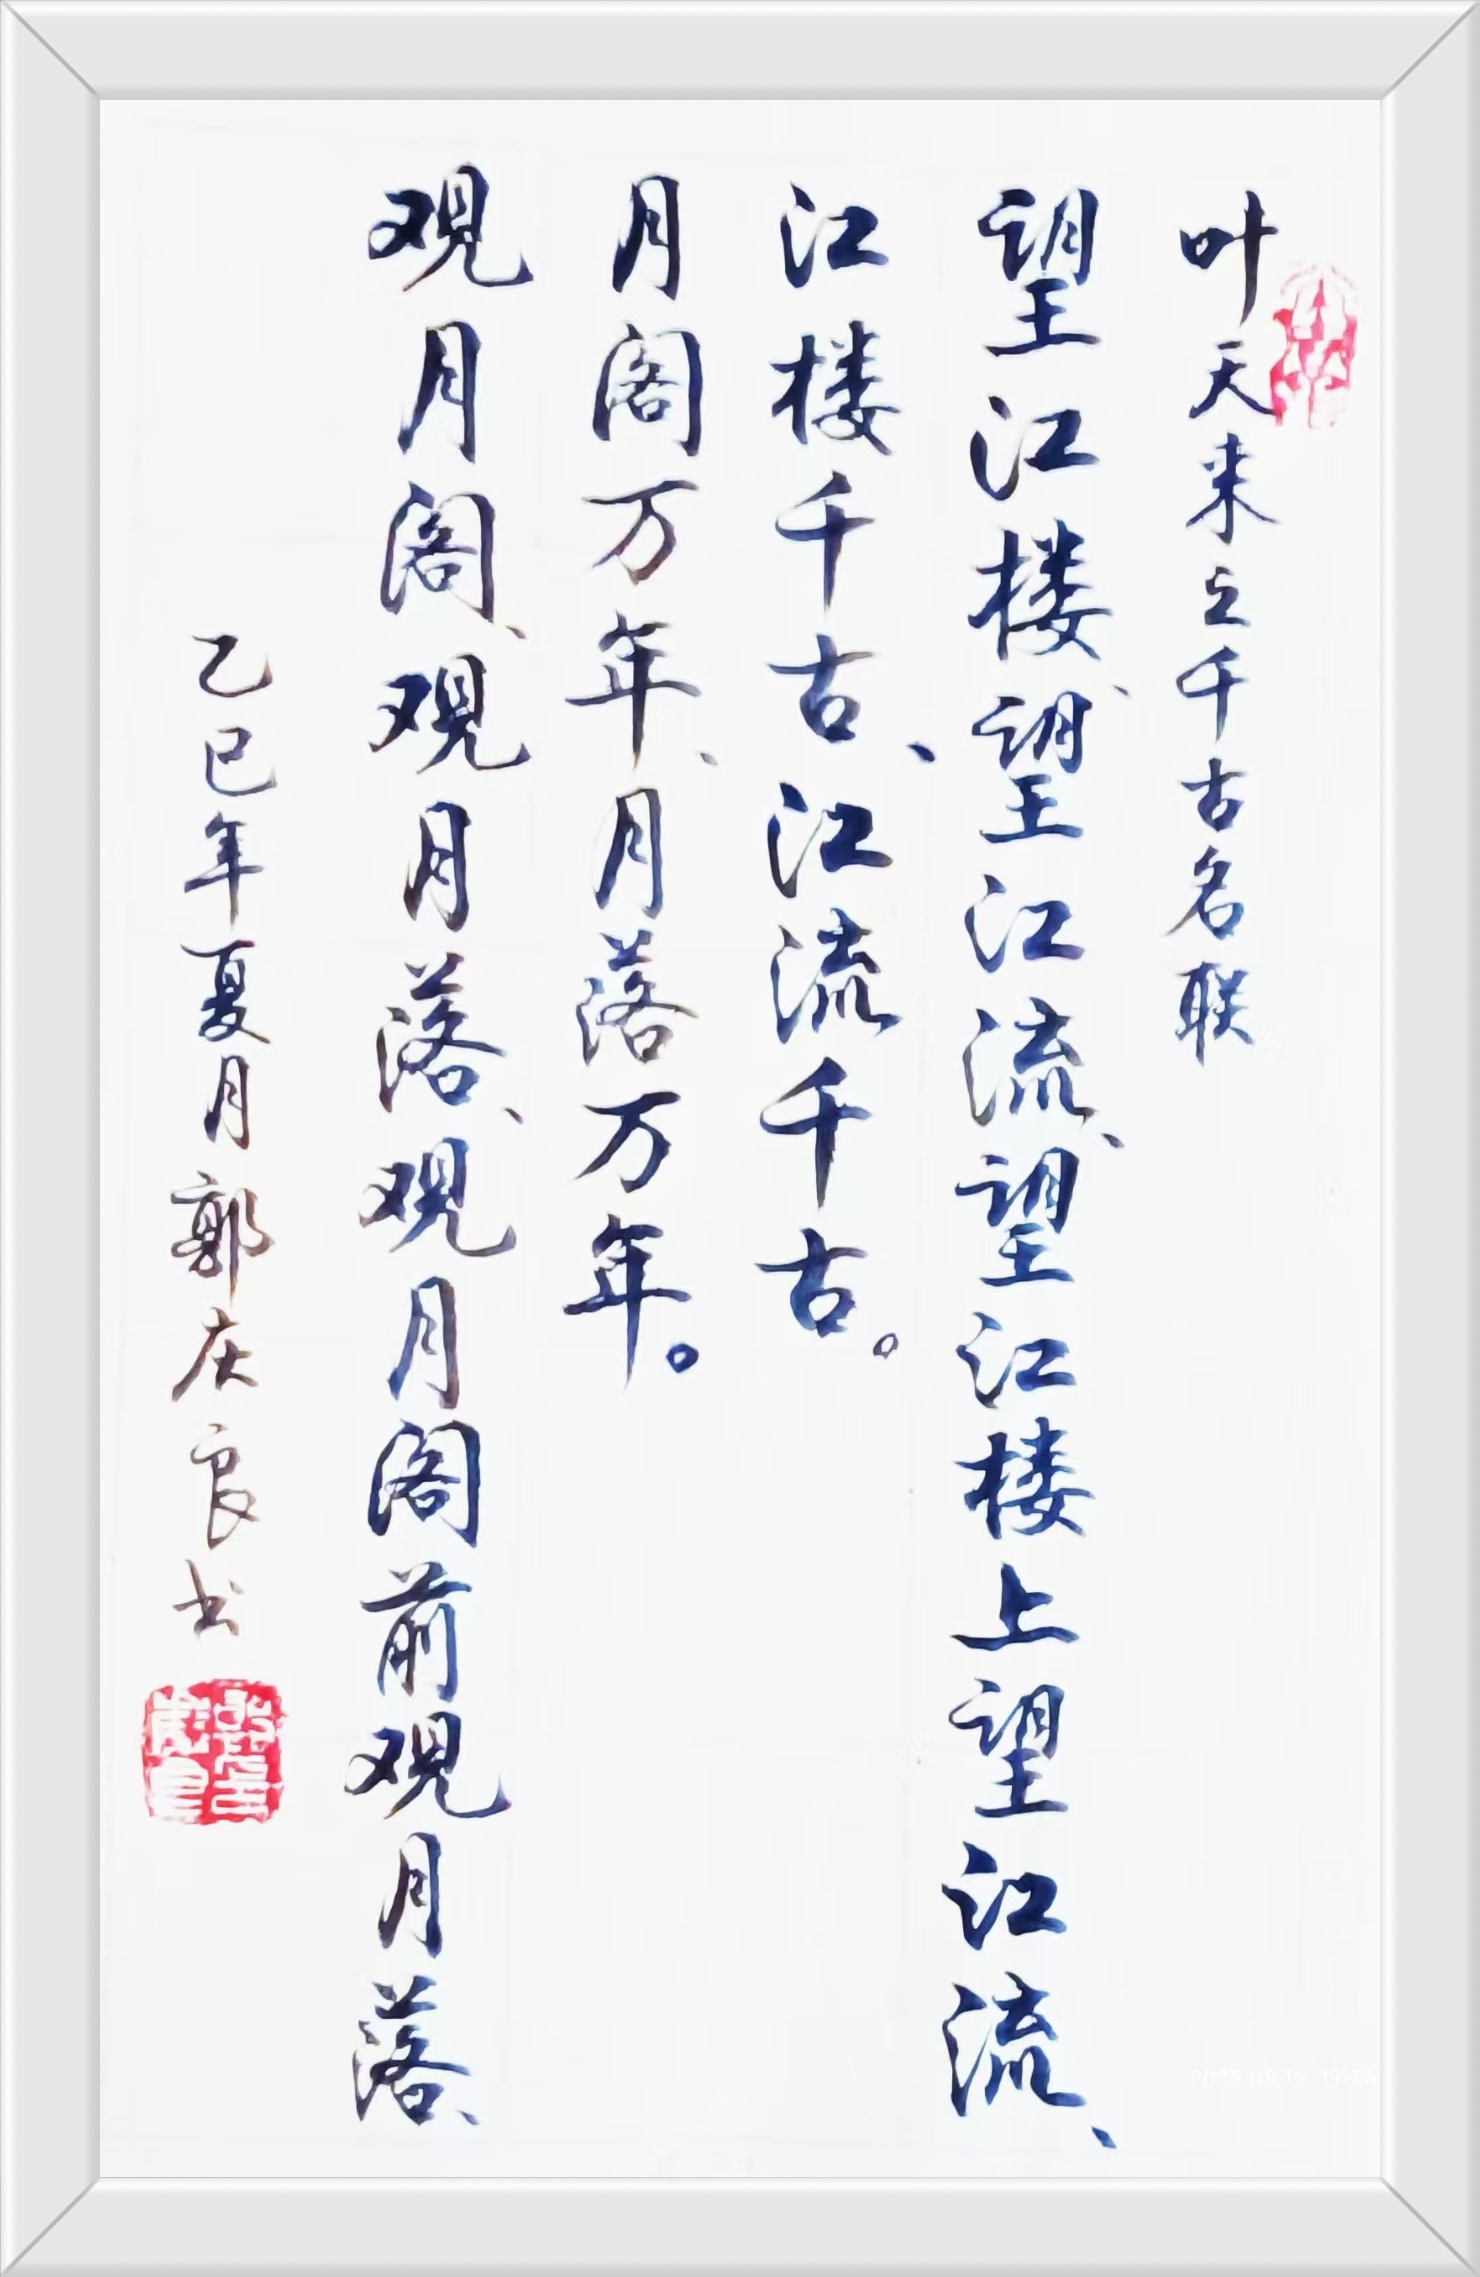 叶天来之千古名联
望江楼、望江流、望江楼上望江流、
江楼千古、江流千古。
观月阁、观月落、观月阁前观月落、
月阁万年、月落万年。
乙巳年夏月郭庆良书